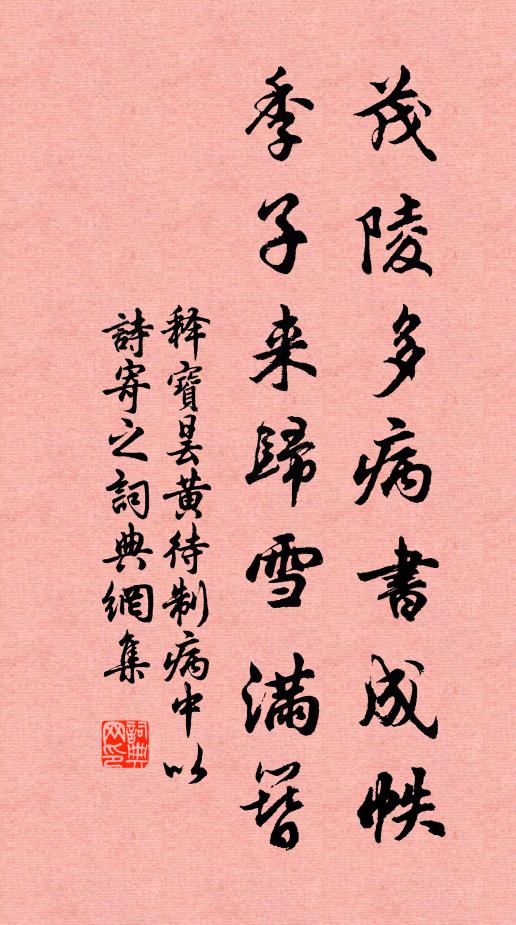 茂陵多病書成帙
季子来歸雪滿簪
释寶曇黃待制病中以
詩寄之詞典網集
詞典網印